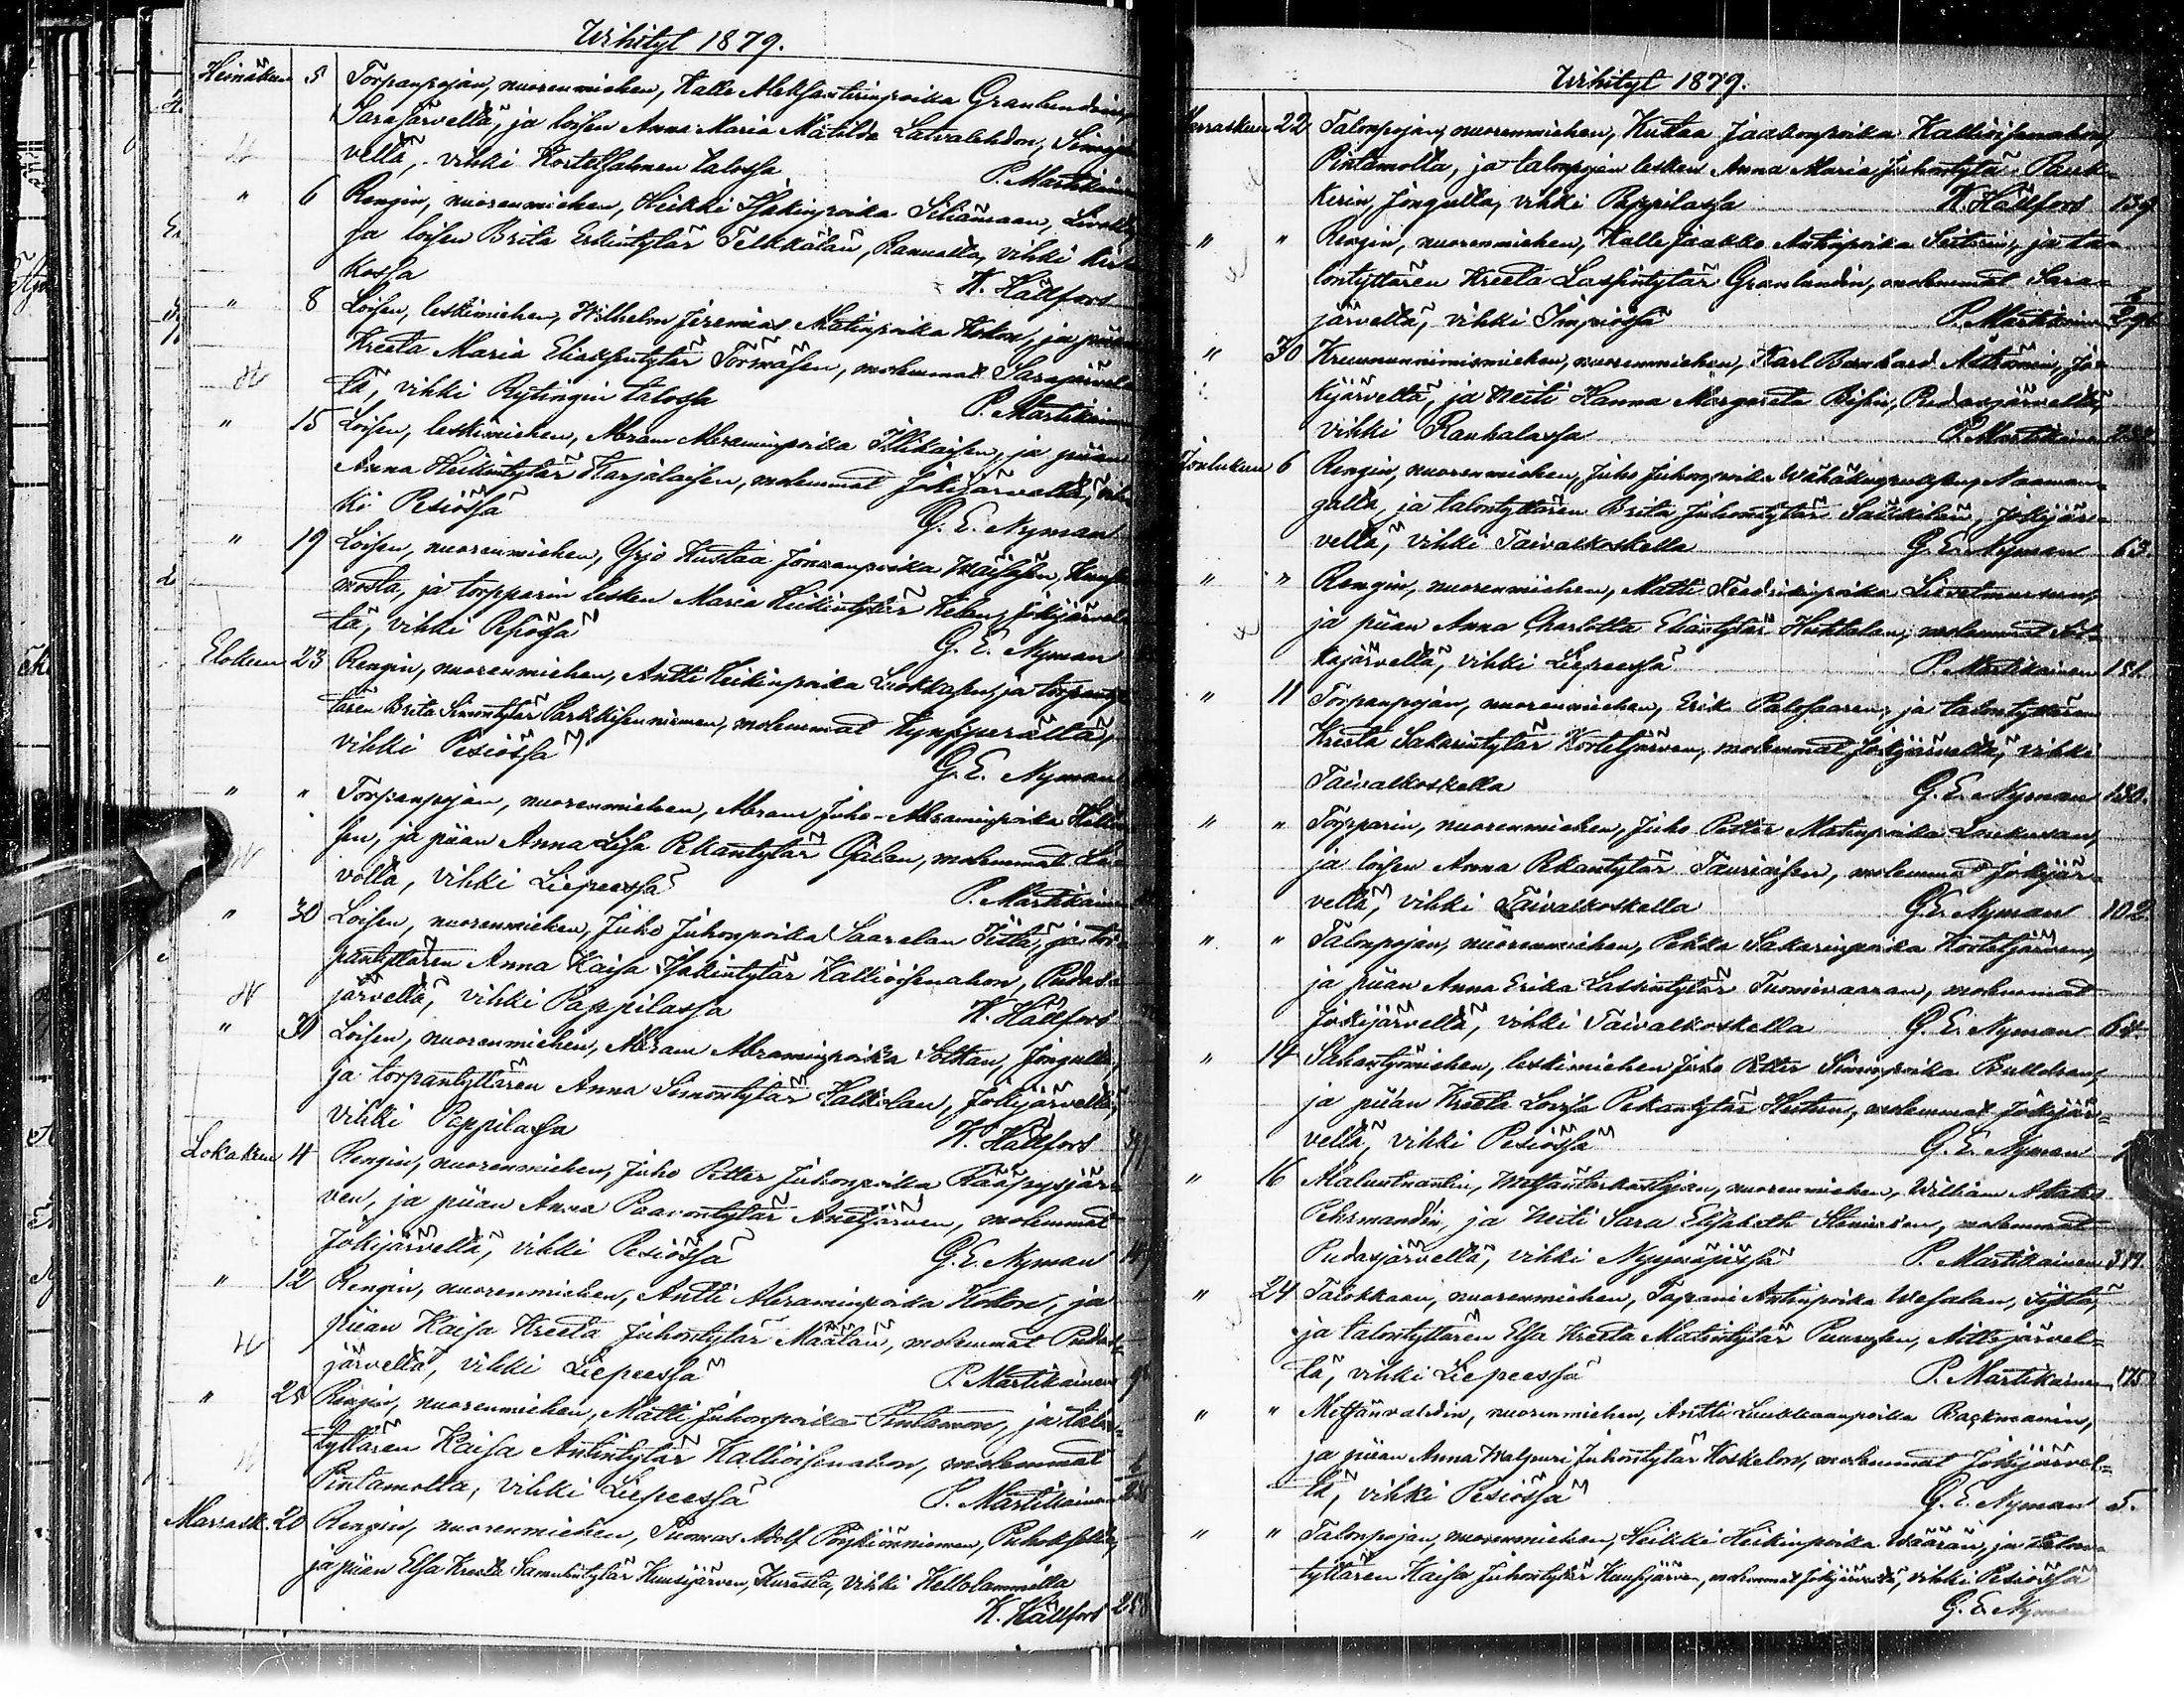 Wihityt 1879.
Heinäkuun 5 Torpanpojan, nuorenmiehen, Kalle Aleksanterinpoika Granlundin,
Sarajärveltä, ja loisen Anna Maria Matilda Latvalehdon,
veltä, vihki Kortetsalmen talossa P. Martikainen
" 6 Rengin, nuorenmiehen, Heikki Isakinpoika
ja loisen Brita Erkintytär Telkkälän, Ranualta, vihki kir-
kossa K. Hällfors
" 8 Loisen, leskimiehen, Wilhelm Jeremias Matinpoika Kokon, ja piian
Kreeta Maria Eliaksentytär Törmäsen, molemmat Sarajärvel-
tä, vihki Rytingin talossa P. Martikainen
" 15 Loisen, leskimiehen, Abram Abraminpoika Illikaisen, ja piian
Anna Heikintytär Karjalaisen, molemmat Jokijärveltä, vih-
ki Pesiössä G. E. Nyman
" 19 Loisen, nuorenmiehen, Yrjö Kustaa Joonanpoika Wäisäsen, Kuusa-
mosta, ja torpparin lesken Maria Heikintytär Kelan, Jokijärvel-
tä, vihki Pesiössä G. E. Nyman
Elokuun 23 Rengin, nuorenmiehen, Antti Heikinpoika Luokkasen, ja torpantyt-
tären Brita Simontytär Parkkisenniemen, molemmat Kynsiperältä,
vihki Pesiössä G. E. Nyman
" " Torpanpojan, nuorenmiehen, Abram Juho Abraminpoika
sen, ja piian Anna Liisa Pekantytär Ojalan, molemmat Li-
volta, vihki Liepeessä P. Martikainen
" 30 Loisen, nuorenmiehen, Juho Juhonpoika Saarelan Iistä, ja tor-
pantyttären Anna Kaisa Isakintytär Kallioisenahon, Pudas-
järveltä, vihki Pappilassa K. Hällfors
" 31 Loisen, nuorenmiehen, Abram Abraminpoika Soltan, Jongulta,
ja torpantyttären Anna Simontytär Halkolan, Jokijärveltä,
vihki Pappilassa K. Hällfors
Lokakuun 4 Rengin, nuorenmiehen, Juho Petter Juhonpoika Rääpysjär-
ven, ja piian Anna Paavontytär Anetjärven, molemmat
Jokijärveltä, vihki Pesiössä G. E. Nyman
" 12 Rengin, nuorenmiehen, Antti Abraminpoika Kokon, ja
piian Kaisa Kreeta Juhontytär Määtän, molemmat Pudas-
järveltä, vihki Liepeessä P. Martikainen
" 25 Rengin, nuorenmiehen, Matti Juhonpoika Pintamon, ja talon-
tyttären Kaisa Antintytär Kallioisenahon, molemmat
Pintamolta, vihki Liepeessä P. Martikainen
Marrask. 20 Rengin, nuorenmiehen, Tuomas Adolf Pöykiönniemen, Puhokselta,
ja piian Elsa Kreeta Samulintytär Kuusijärven, Kuresta, vihki Kellolammilla
K. Hällfors 258
Wihityt 1879.
Marraskuun 22 Talonpojan, nuorenmiehen, Kustaa Jaakonpoika Kallioisenahon,
Pintamolta, ja talonpojan lesken Anna Maria Juhontytär Pank-
kirin, Jongulta, vihki Pappilassa K. Hällfors 139
" " Rengin, nuorenmiehen, Kalle Jaakko Antinpoika ja ta-
lontyttären Kreeta Lassintytär Granlundin, molemmat Sara-
järveltä, vihki Impiössä P. Martikainen
" 30 Kruununnimismiehen, nuorenmiehen, Karl Bernhard Jo-
kijärveltä, ja Neiti Hanna Margareta Pudasjärveltä,
vihki Rauhalassa P. Martikainen
Joulukuun 6 Rengin, nuorenmiehen, Juho Juhonpoika Naaman-
galta, ja talontyttären Brita Juhontytär Säkkilän, Jokijär-
veltä, vihki Taivalkoskella G. E. Nyman 63
" " Rengin, nuorenmiehen, Matti Fredrikinpoika
ja piian Anna Charlotta Eliantytär Huhtalan, molemmat
kajärveltä, vihki Liepeessä P. Martikainen 181.
" 11 Torpanpojan, nuorenmiehen, Erik Palosaaren, ja talontyttären
Kreeta Sakarintytär Kortetjärven, molemmat Jokijärveltä, vihki
Taivalkoskella G. E. Nyman 180.
" " Torpparin, nuorenmiehen, Juho Petter Matinpoika Loukusan,
ja loisen Anna Pekantytär Tauriaisen, molemmat Jokijär-
veltä, vihki Taivalkoskella G. E. Nyman 102.
" " Talonpojan, nuorenmiehen, Pekka Sakarinpoika Kortetjärven,
ja piian Anna Erika Lassintytär Tuomivaaran, molemmat
Jokijärveltä, vihki Taivalkoskella G. E. Nyman 64.
" 14 Sahantyömiehen, leskimiehen Juho Petter Simonpoika
ja piian Kreeta Lovisa Pekantytär molemmat Jokijär-
veltä, vihki Pesiössä G. E. Nyman
" 16 Aluutnantin, Metsäntarkastajan, nuorenmiehen, William
ja Neiti Sara Elisabeth molemmat
Pudasjärveltä, vihki P. Martikainen 317.
" 24 Talokkaan, nuorenmiehen, Tapani Antinpoika Wesalan, Iijoelta,
ja talontyttären Elsa Kreeta Matintytär Puurusen, järvel-
tä, vihki Liepeessä P. Martikainen 175
" " Metsänvahdin, nuorenmiehen, Antti Luukkaanpoika Backmanin,
ja piian Anna Walpuri Juhontytär Koskelon, molemmat Jokijärvel-
tä, vihki Pesiössä G. E. Nyman 5.
" " Talonpojan, nuorenmiehen, Heikki Heikinpoika Määrän, ja talon-
tyttären Kaisa Juhontytär Kuusijärven, molemmat Jokijärveltä, vihki Pesiössä
G. E. Nyman